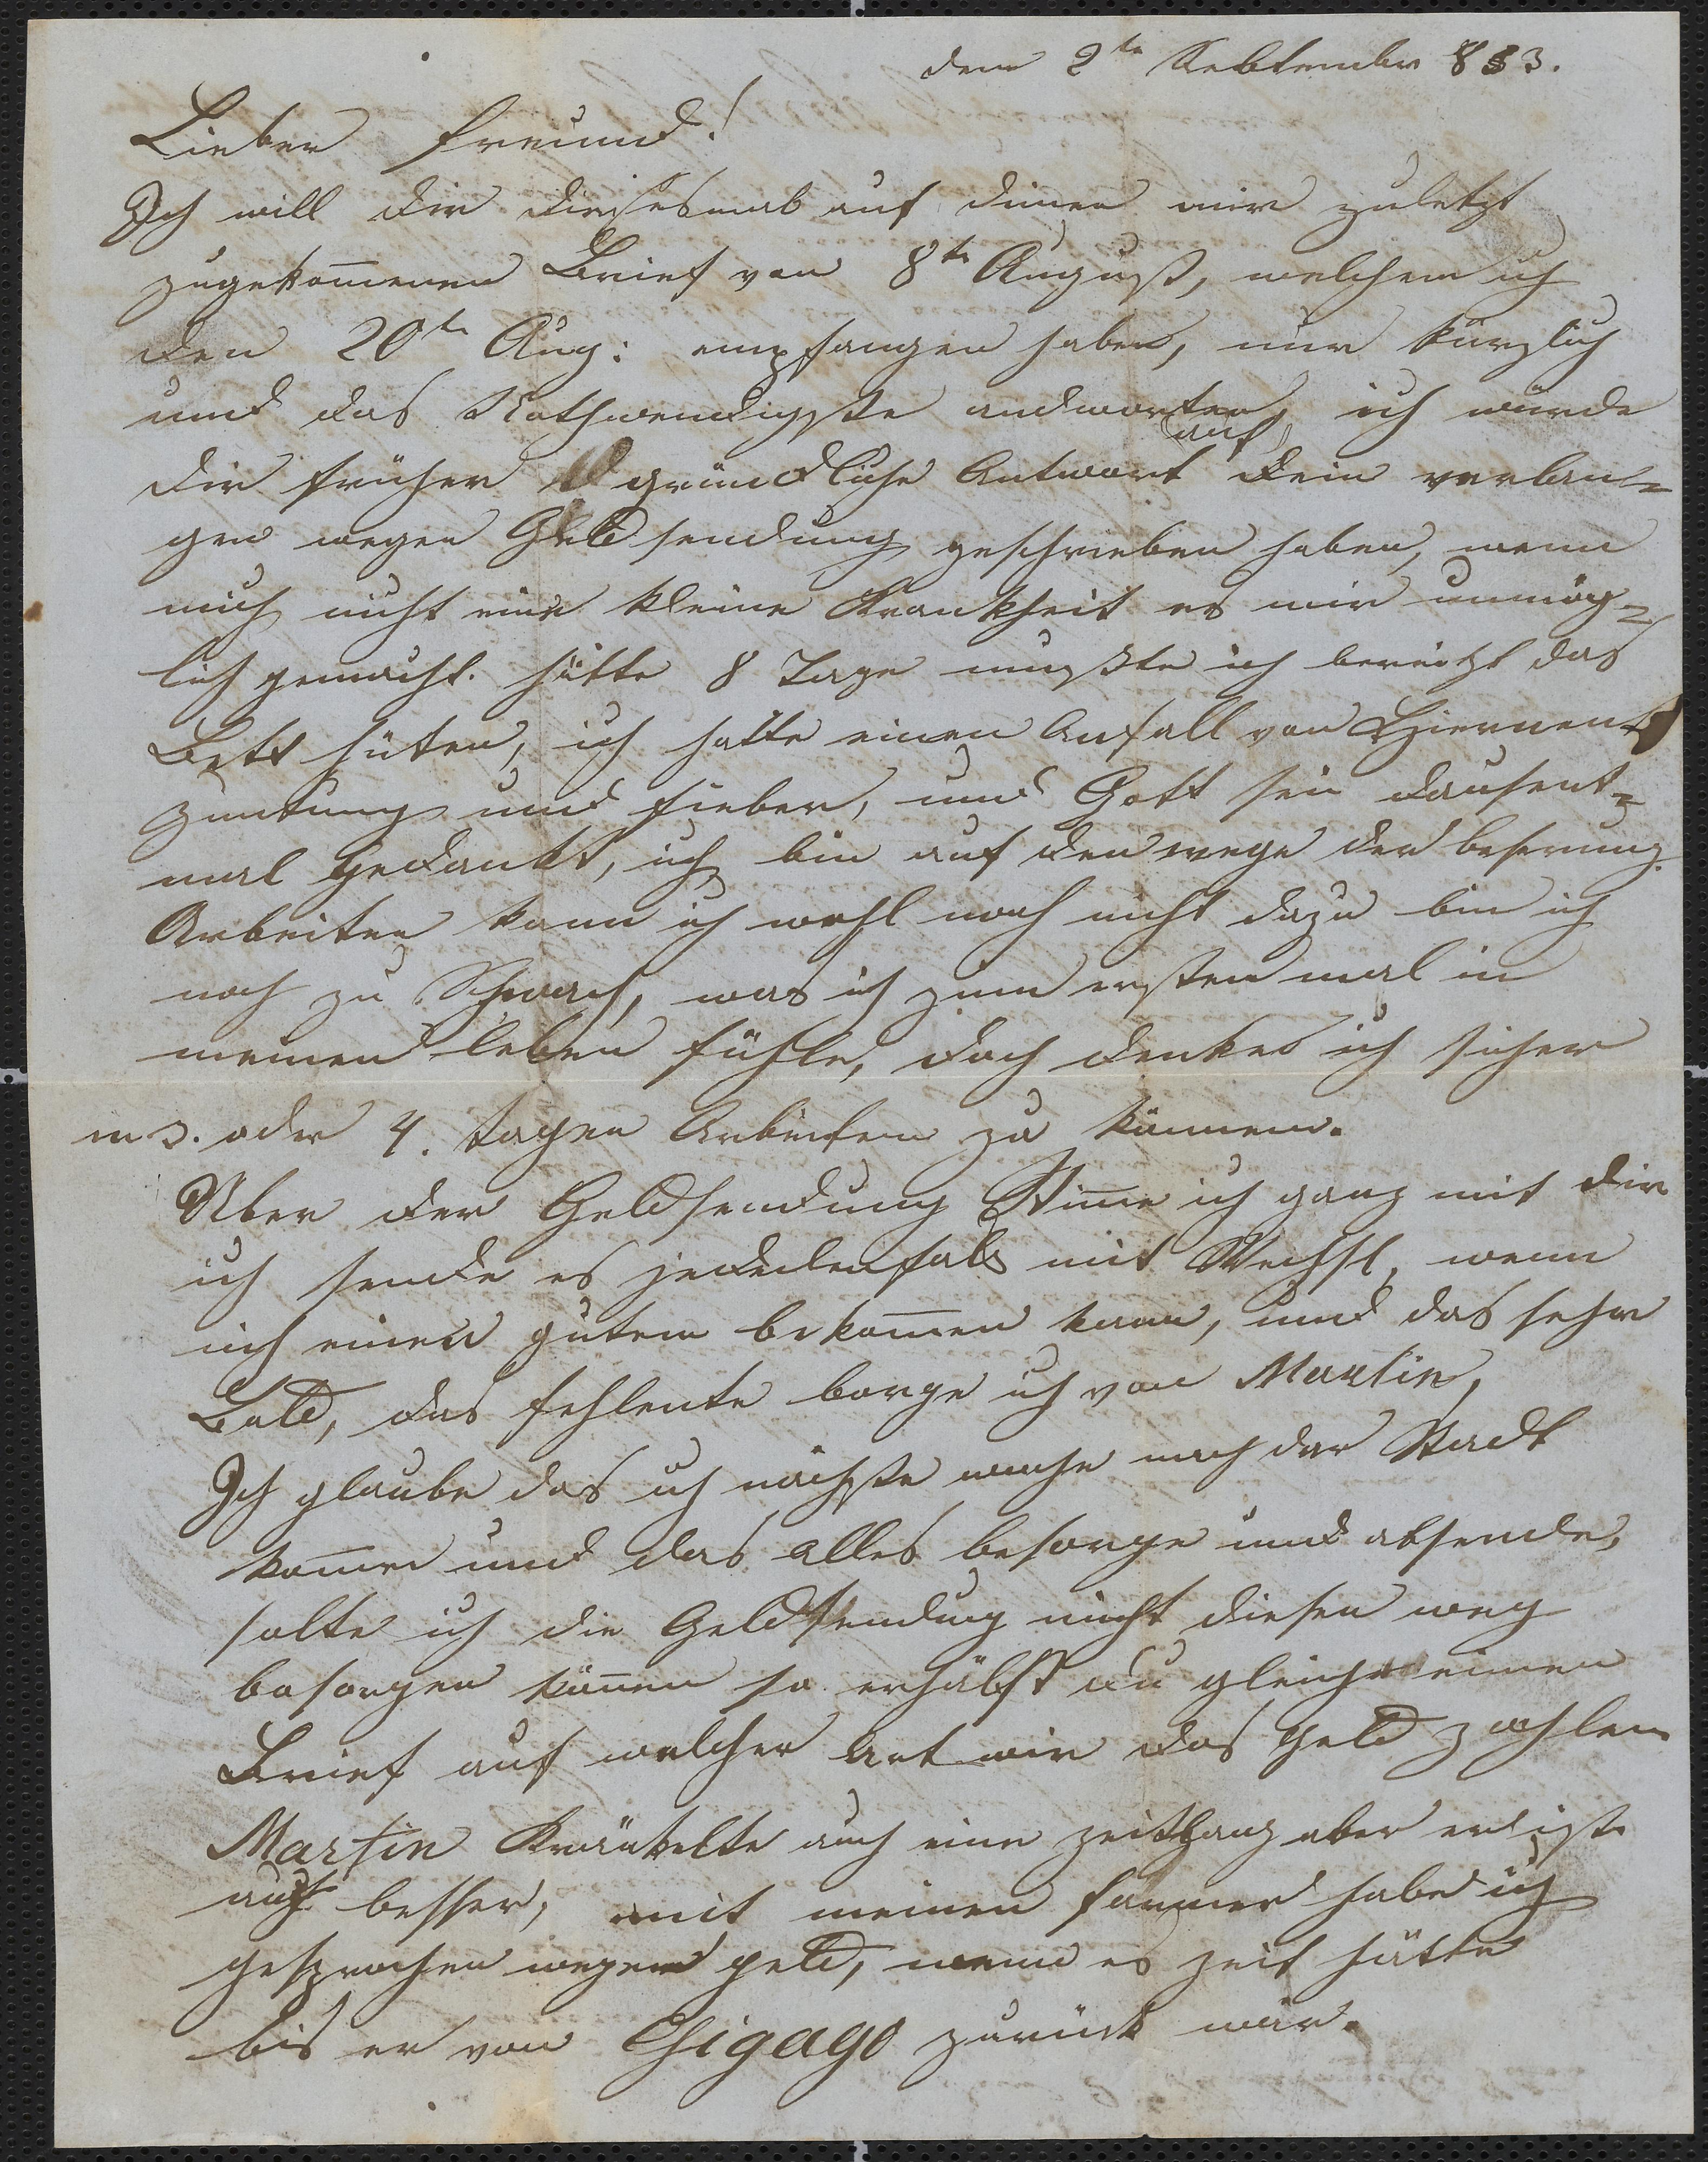 den 2te Sebtember 853.
Lieber Freund!
Ich will dir diesesmal auf deinen mir zuletzt
zugekom̅enen Brief von 8te August, welchen ich
den 20te Aug: empfangen habe, nur kürzlich
und das Nothwendigste andworten, ich würde
auf
dir früher gründliche Antwort dein verlan=
gen wegen Geld sendung geschrieben haben, wenn
mich nicht eine kleine Krankheit es mir unmög=
lich gemacht. hätte 8 Tage mußte ich bereitzt das
Bett hüten, ich hatte einen Anfall von Hiernent
zuntung und fieber, und Gott sei dausent=
mal Gedankt, ich bin auf den wege der beserung.
Arbeiten kann ich wohl noch nicht dazu bin ich
noch zu Schwach, was ich zum ersten mal in
meinen leben fühle, doch denke ich sicher
in 3. oder 4. tagen Arbeiten zu können.
Über der Geldsendung Stim̅e ich ganz mit dir
ich sende es jedenfals mit Wechsl, wenn
ich einen guten bekom̅en kann, und das sehr
Bald, das fehlente borge ich von Martin,
Ich glaube das ich nächste woche nach der Stadt
kom̅e und das alles besorge und absende,
solte ich die Geldsendung nicht diesen weg
besorgen kön̅en so erhälst du gleich einen
Brief auf welcher Art wir das Geld zahlen
Martin Kränkelte auch eine zeitlang aber er ist
auch besser, mit meinen farmer habe ich
gesprochen wegen geld, wenn es zeit hätte
bis er von Chigago zurück wär.